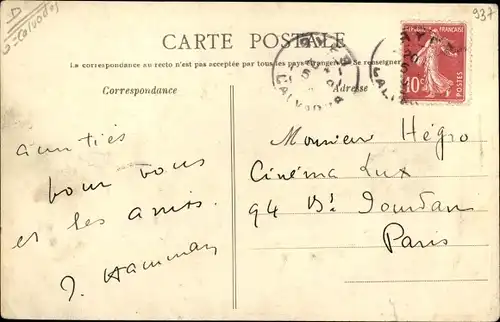 D
G-Calvados
937
CARTE POSTALE
La correspondance au recto n'est pas acceptée par tous les pays étrangers. Se renseigner
Correspondance
Adresse
CALVADOS
REPUBLIQUE FRANÇAISE
10c
POSTES
amitiés
pour vous
et les amis.
J. Hamman
Monsieur Hégro
Cinéma Lux
94 Bd Jourdan
Paris